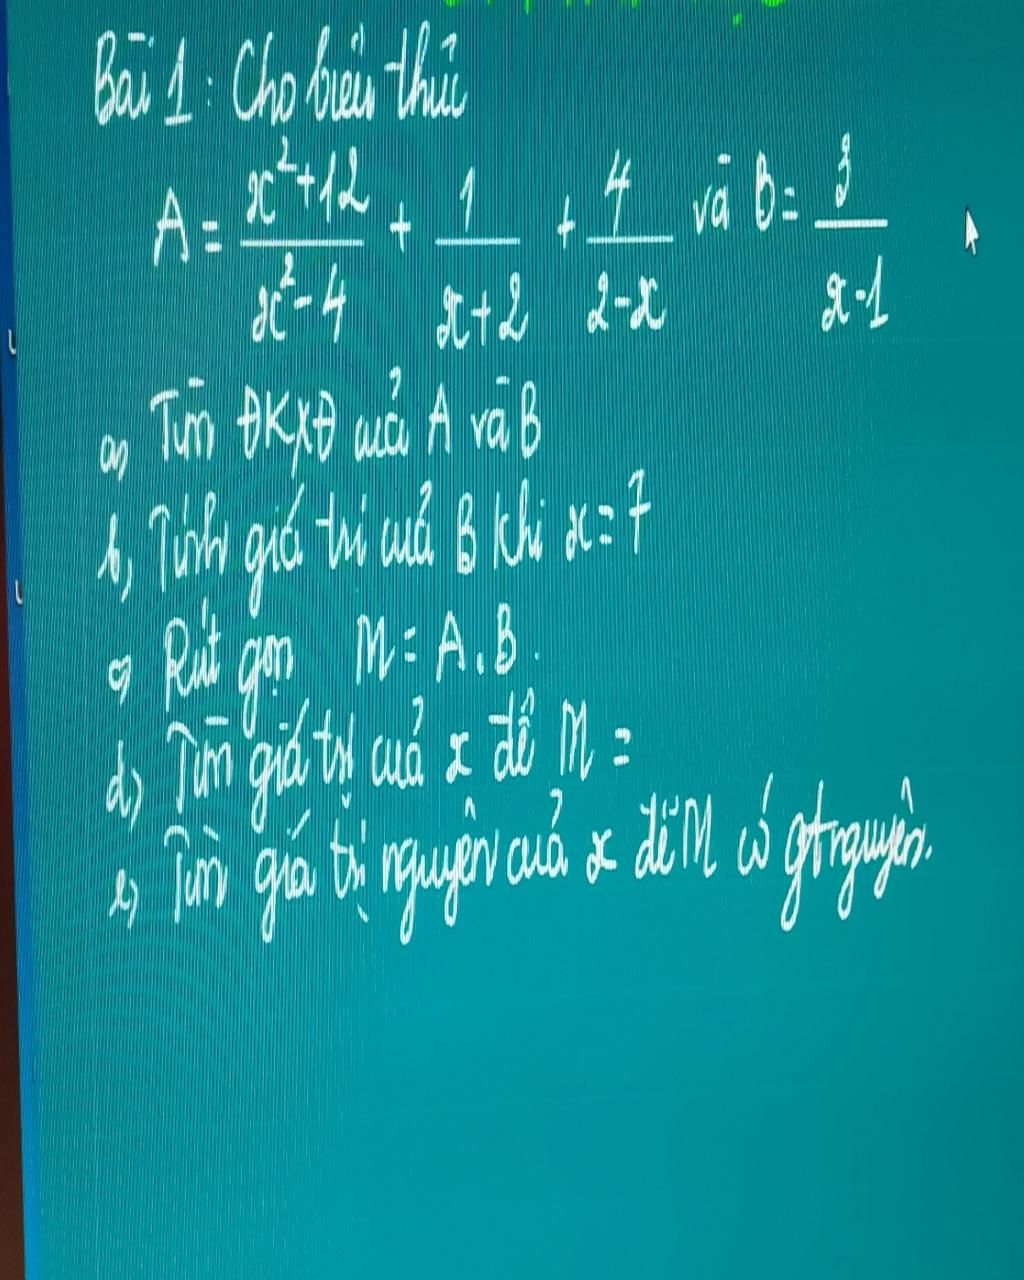 Bài 1 : Cho biểu thức
A = \frac{x^2+12}{x^2-4} + \frac{1}{x+2} + \frac{4}{2-x} và B = \frac{3}{x-1}
a, Tìm ĐKXĐ của A và B
b, Tính giá trị của B khi x = 7
c, Rút gọn M = A.B.
d, Tìm giá trị của x để M =
e, Tìm giá trị nguyên của x để M có gt nguyên.